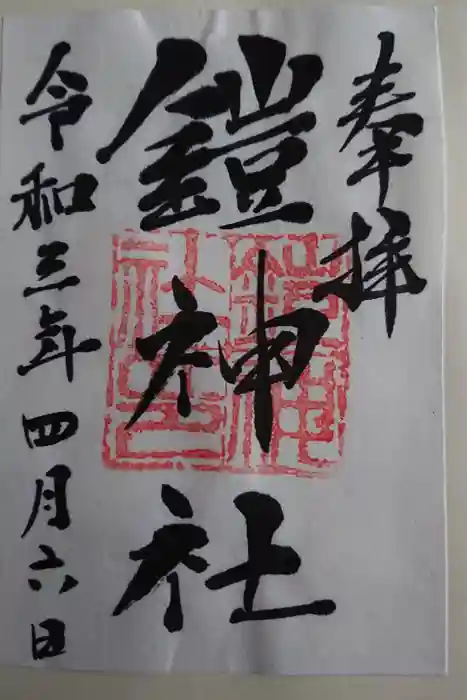 奉拝
鎧神社
令和三年四月六日